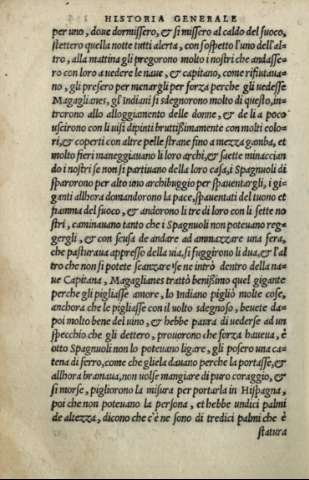 HISTORIA GENERALE
per uno, doue dormissero, & si missero al caldo del fuoco,
stettero quella notte tutti alerta, con sospetto l'uno dell'al=
tro, alla mattina gli pregorono molto i nostri che andasse=
ro con loro a uedere le naue, & capitano, come rifiutaua=
no, gli presero per menargli per forza perche gli uedesse
Magaglianes, gl'Indiani si sdegnorono molto di questo, in=
trorono allo alloggiamento delle donne, & de lì a poco
uscirono con li uisi dipinti bruttissimamente con molti colo=
ri, & coperti con altre pelle strane fino a mezza gamba, et
molto fieri maneggiauano li loro archi, & saette minaccian
do i nostri se non si partiuano della loro casa, i Spagnuoli di
sparorono per alto uno archibuggio per spauentargli, i gi=
ganti allhora domandorono la pace, spauentati del tuono et
fiamma del fuoco, & andorono li tre di loro con li sette no
stri, caminauano tanto che i Spagnuoli non poteuano reg=
gergli, & con scusa de andare ad ammazzare una fera,
che pasturaua appresso della uia, si fuggirono li dua, & l'al
tro che non si potete scanzare se ne intrò dentro della na=
ue Capitana, Magaglianes trattò benissimo quel gigante
perche gli pigliasse amore, lo Indiano pigliò molte cose,
anchora che le pigliasse con il uolto sdegnoso, beuete da=
poi molto bene del uino, & hebbe paura di uederse ad un
specchio che gli dettero, prouorono che forza haueua, è
otto Spagnuoli non lo poteuano ligare, gli posero una ca=
tena di ferro, come che gliela dauano perche la portasse, &
allhora bramaua, non uolse mangiare di puro coraggio, &
si morse, pigliorono la misura per portarla in Hispagna,
poi che non poteuano la persona, et hebbe undici palmi
de altezza, dicono che c'è ne sono di tredici palmi che è
statura